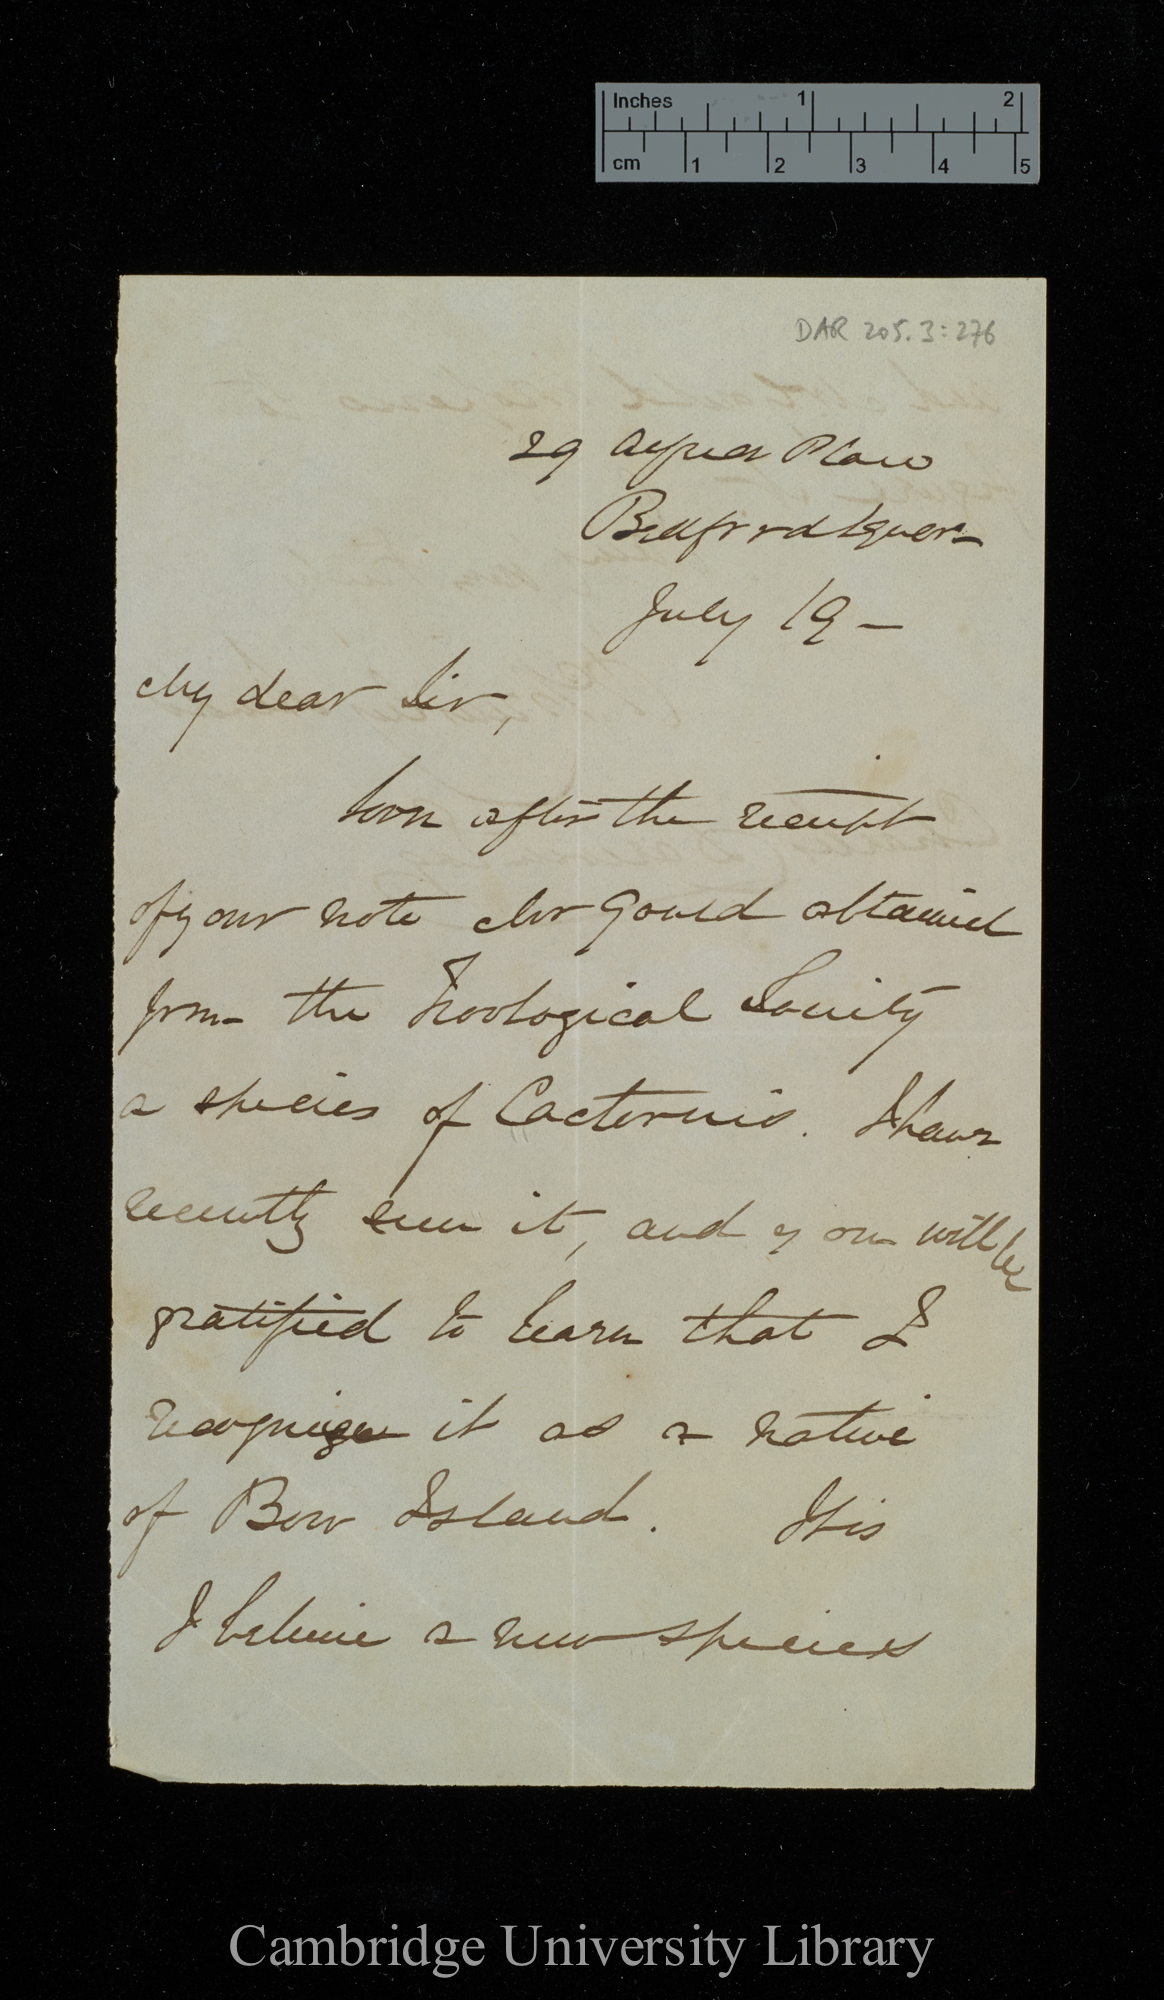 Inches 1 2
cm 1 2 3 4 5
DAR 205.3:276
29 Alfred Place
Bedford Square
July 19 –
My dear Sir,
Soon after the receipt
of your note Mr Gould obtained
from the Zoological Society
a species of Cactornis. I have
recently seen it, and you will be
gratified to learn that I
recognize it as a native
of Bow Island. It is
I believe a new species
Cambridge University Library